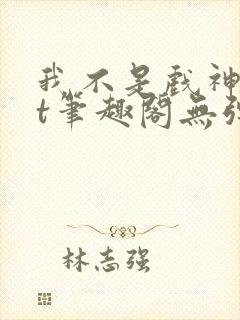 我不是戏神
t筆趣閣無弹
林志强